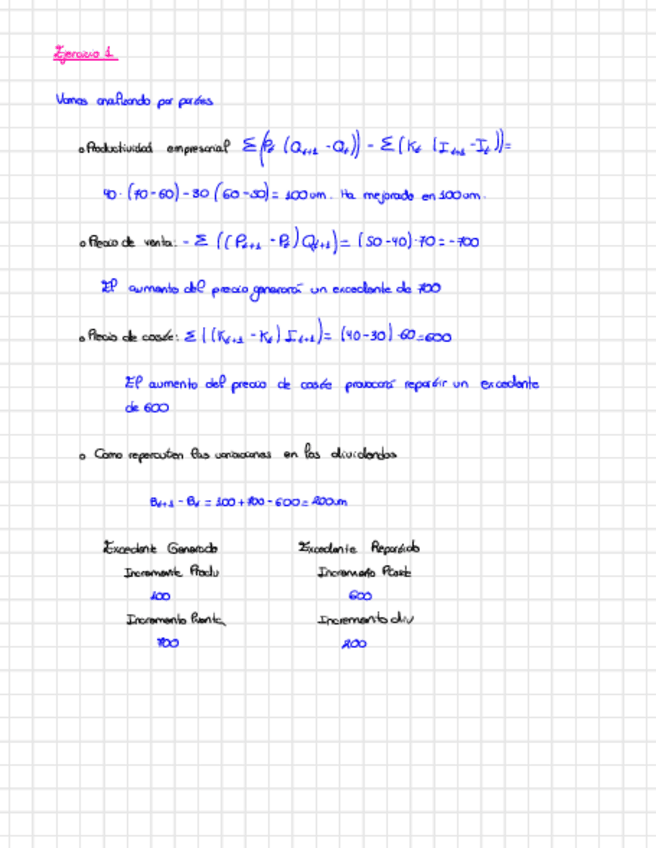 Ejercicio 1
Vamos analizando por partes
• Productividad empresarial Σ(Pt (Qt+1 - Qt)) - Σ(Kt (It+1 - It))=
40·(70-60)-30(60-50)= 100um. Ha mejorado en 100um.
• Precio de venta: - Σ((Pt+1 - Pt)Qt+1)= (50-40)·70=-700
El aumento del precio generará un excedente de 700
• Precio de coste: Σ((Kt+1 - Kt) It+1)= (40-30)·60=600
El aumento del precio de coste provocará repartir un excedente
de 600
• Como repercuten las variaciones en los dividendos
Bt+1 - Bt = 100+700-600=200um
Excedente Generado Excedente Repartido
Incremente Produ Incremento Pcost
100 600
Incremento Pventa Incremento div
700 200